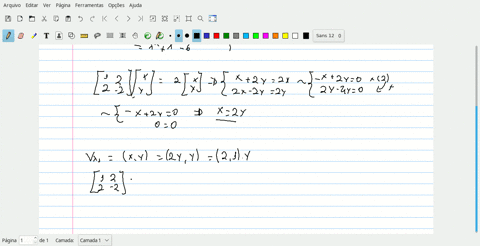 Arquivo Editar Ver Página Ferramentas Opções Ajuda
Sans 12
= x²+x -6
[1 2 / 2 -2] [x / y] = 2 [x / y] ⇒ { x+2y=2x / 2x-2y=2y ~ { -x+2y=0 x(2) / 2x-4y=0 ↙+
~ { -x+2y=0 / 0=0 ⇒ x=2y
Vλ₁ = (x,y) = (2y,y) = (2,1).y
[1 2 / 2 -2] .
Página 1 de 1 Camada: Camada 1